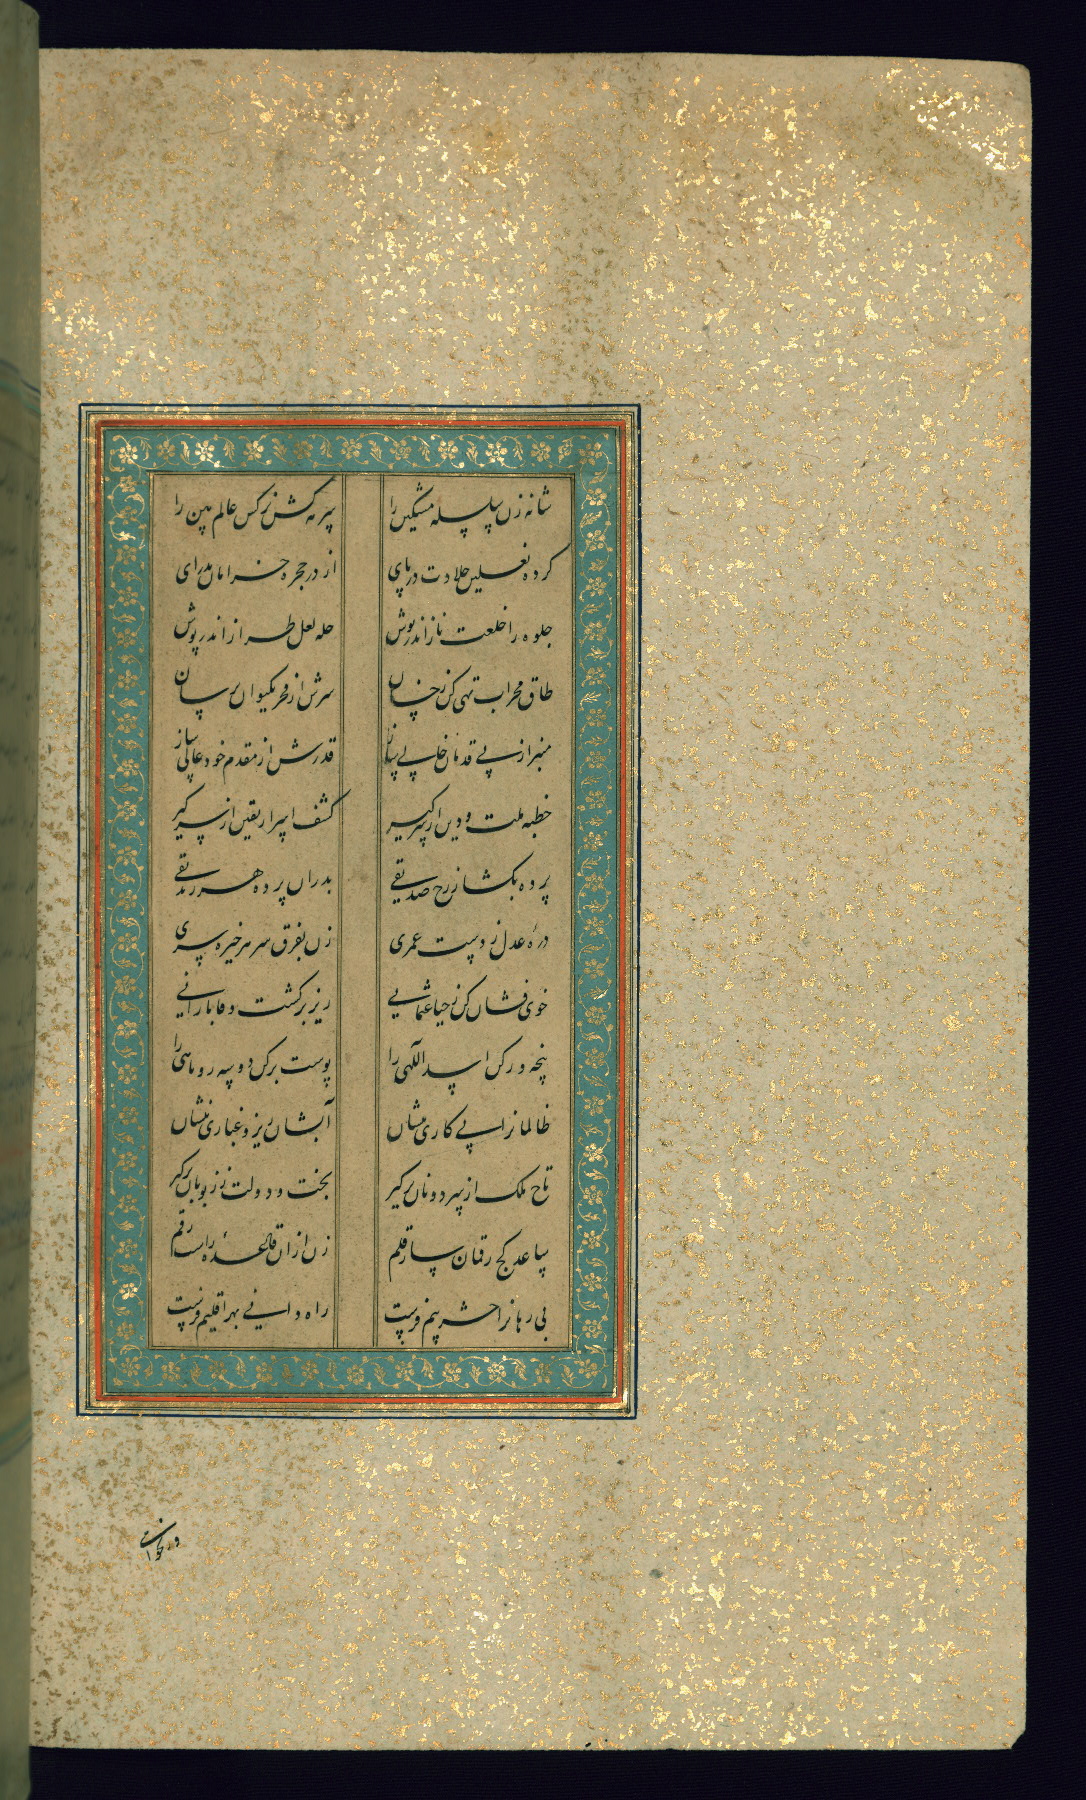 شانه زن سلسله مشکین را
سرمه کش نرکس عالم بین را
کرده نعلین جلادت در پای
از در حجره خرامان بدر ای
جلوه را خلعت ناز اندر پوش
حله لعل طراز اندر پوش
طاق محراب تهی کن ز خسان
سرش از فخر بکیوان برسان
منبر از پی قدمان خالی ساز
قدرش از مقدم خود عالی ساز
خطبه ملت و دین از سر کیر
کشف اسرار یقین از سر کیر
پرده بکشا ز رخ صدیقی
بدران پرده هر زندیقی
درهٔ عدل ز دست عمری
زن بفرق سر هر خیره سری
خوی فشان کن ز حیا عثمانی
ریز بر کشت وفا بارانی
پنجه ور کن اسد اللهی را
پوست برکن دو سه روباهی را
ظالمانرا پی کاری بنشان
آبشان ریز و غباری بنشان
تاج ملک از سر دونان برکیر
بخت و دولت ز زبونان برکیر
ساعد کج رقمان ساز قلم
زن از ان قاعدهٔ راست رقم
بی رهانرا حشر بیم فرست
راه دانی بهر اقلیم فرست
در خواب